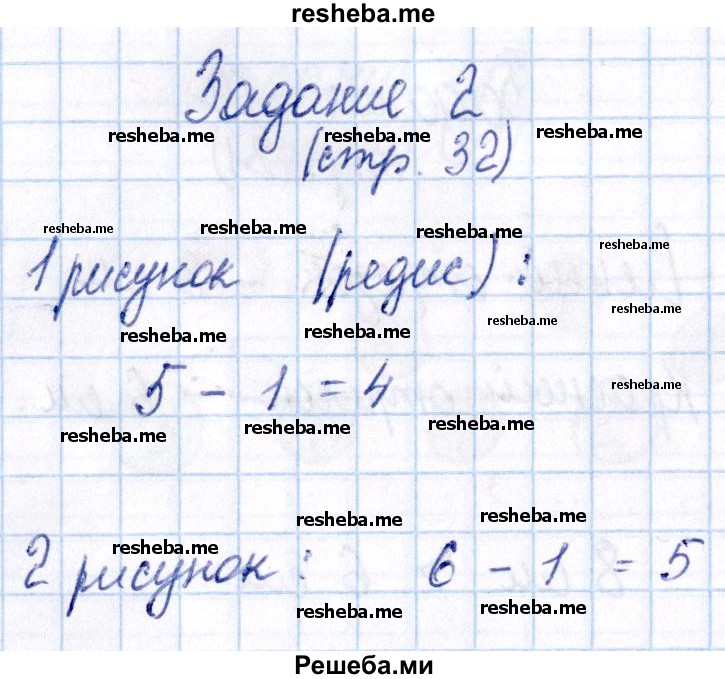 resheba.me
Задание 2
resheba.me resheba.me resheba.me
(стр. 32)
resheba.me resheba.me resheba.me resheba.me
1 рисунок (редис):
resheba.me resheba.me resheba.me resheba.me
5 - 1 = 4
resheba.me
resheba.me resheba.me resheba.me
resheba.me resheba.me
2 рисунок: 6 - 1 = 5
resheba.me
resheba.me resheba.me
Решеба.ми